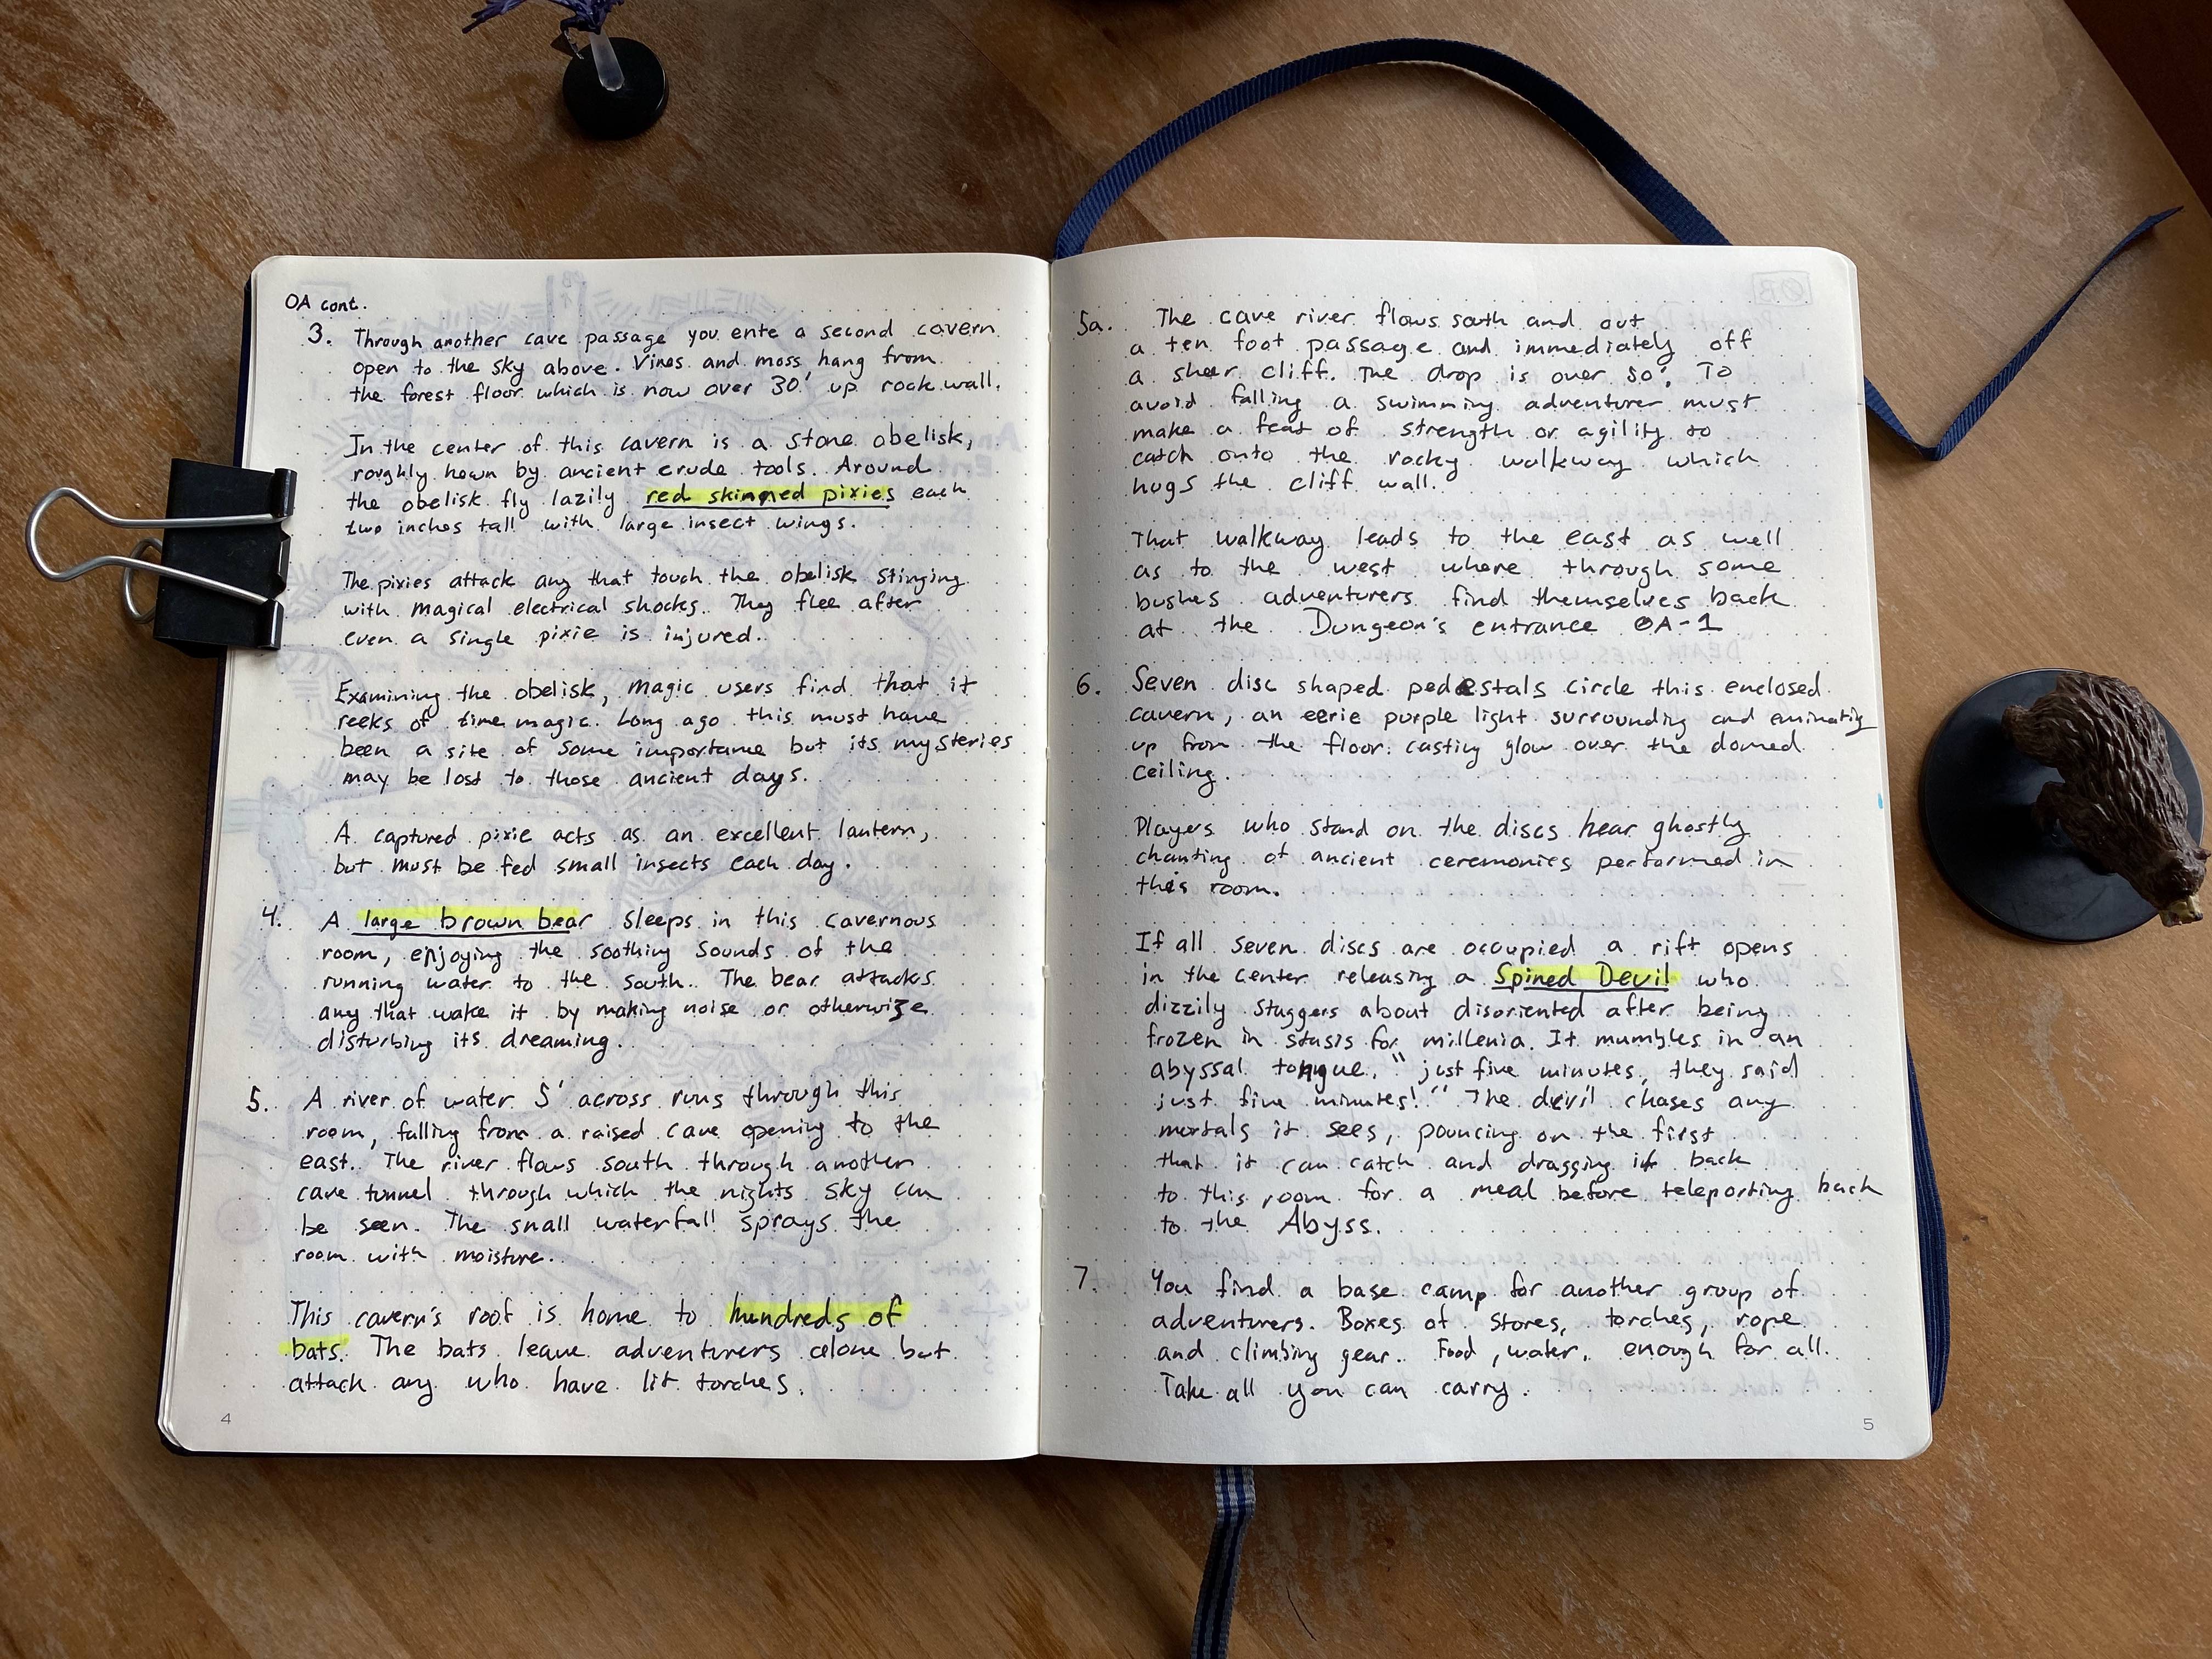 OA cont.
3. Through another cave passage you ente a second cavern
open to the sky above. Vines and moss hang from
the forest floor which is now over 30' up rock wall.
In the center of this cavern is a stone obelisk,
roughly hewn by ancient crude tools. Around
the obelisk fly lazily red skinned pixies each
two inches tall with large insect wings.
The pixies attack any that touch the obelisk stinging
with magical electrical shocks. They flee after
even a single pixie is injured.
Examining the obelisk, magic users find that it
reeks of time magic. Long ago this must have
been a site of some importance but its mysteries
may be lost to those ancient days.
A captured pixie acts as an excellent lantern,
but must be fed small insects each day.
4. A large brown bear sleeps in this cavernous
room, enjoying the soothing sounds of the
running water to the south. The bear attacks
any that wake it by making noise or otherwize
disturbing its dreaming.
5. A river of water 5' across runs through this
room, falling from a raised cave opening to the
east. The river flows south through another
cave tunnel through which the nights sky can
be seen. The small waterfall sprays the
room with moisture.
This cavern's roof is home to hundreds of
bats. The bats leave adventurers alone but
attack any who have lit torches.
4
5a. The cave river flows south and out
a ten foot passage and immediately off
a sheer cliff. The drop is over 50'. To
avoid falling a swimming adventurer must
make a feat of strength or agility to
catch onto the rocky walkway which
hugs the cliff wall.
That walkway leads to the east as well
as to the west where through some
bushes adventurers find themselves back
at the Dungeon's entrance OA-1
6. Seven disc shaped pedestals circle this enclosed
cavern, an eerie purple light surrounding and eminatig
up from the floor casting glow over the domed
ceiling.
Players who stand on the discs hear ghostly
chanting of ancient ceremonies performed in
this room.
If all seven discs are occupied a rift opens
in the center releasing a Spined Devil who
dizzily staggers about disoriented after being
frozen in stasis for millenia. It mumbles in an
abyssal tongue, "just five minutes, they said
just five minutes!" The devil chases any
mortals it sees, pouncing on the first
that it can catch and dragging it back
to this room for a meal before teleporting back
to the Abyss.
7. You find a base camp for another group of
adventurers. Boxes of stores, torches, rope
and climbing gear. Food, water, enough for all.
Take all you can carry.
5